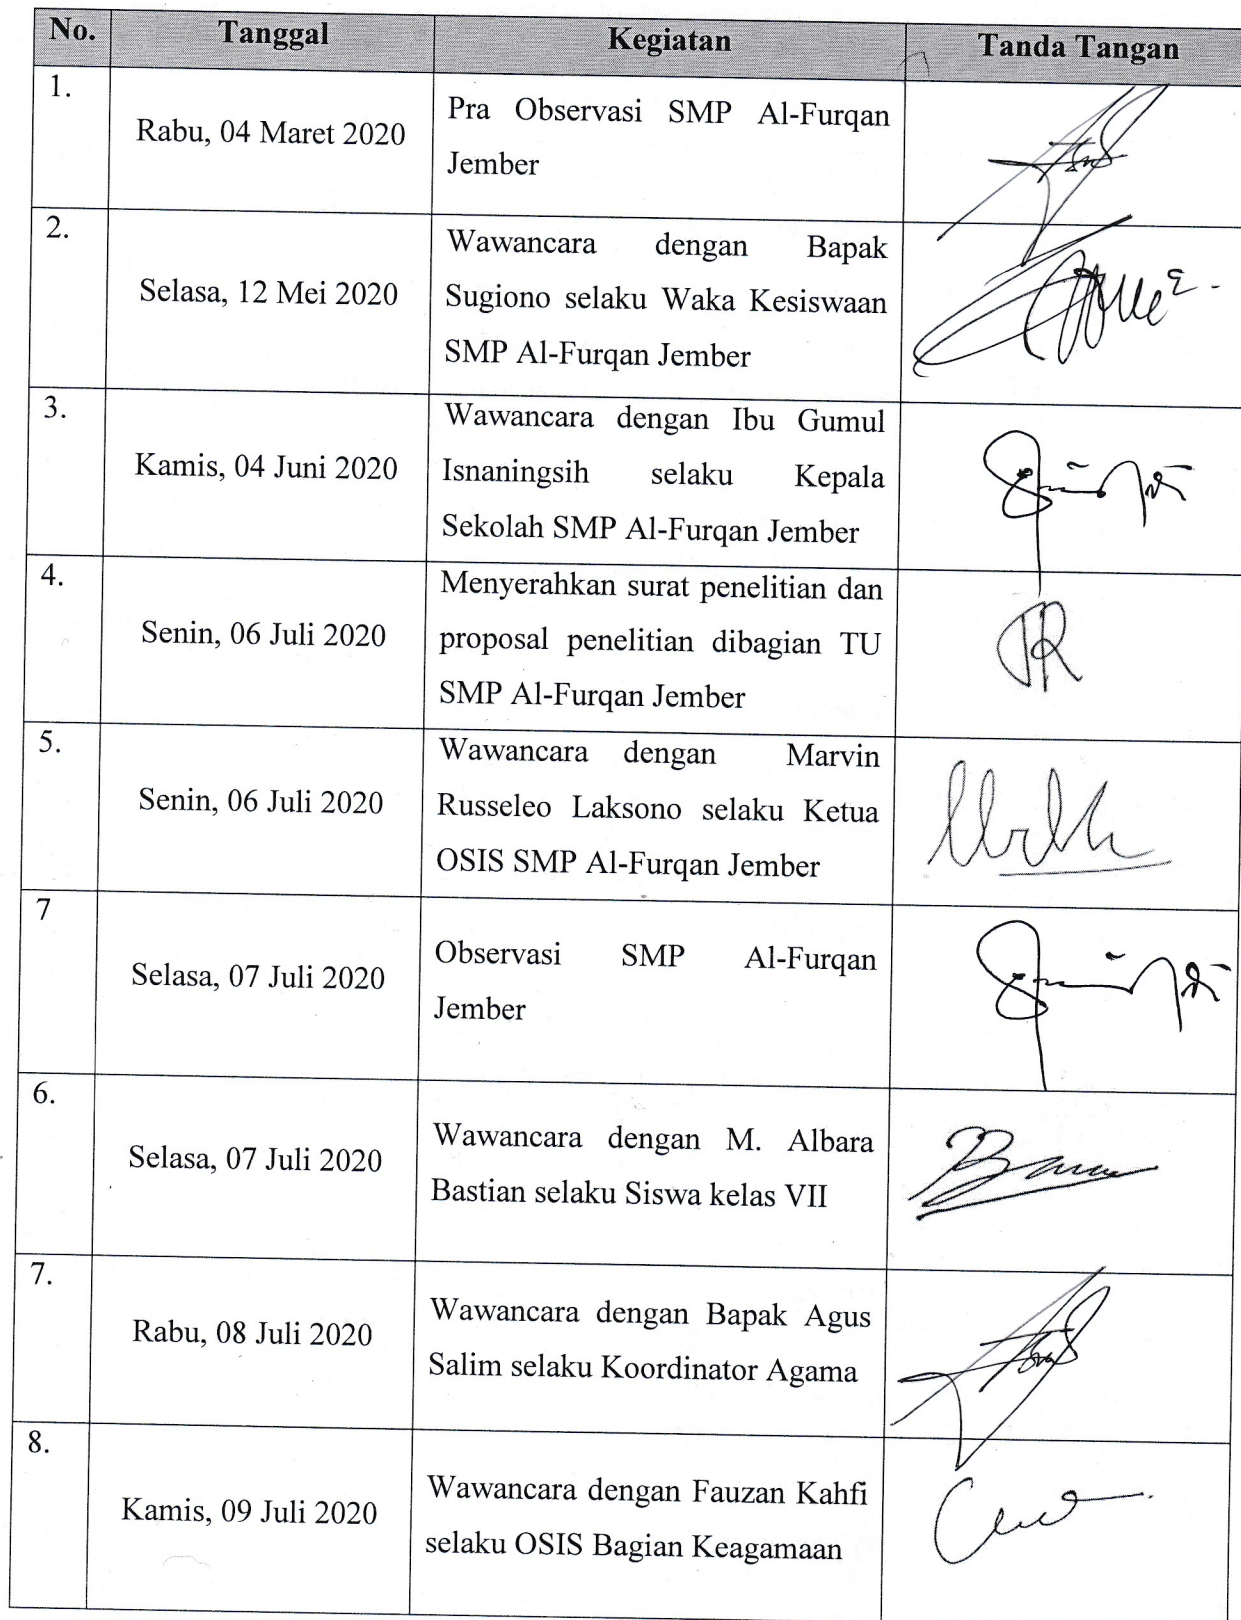 No. Tanggal Kegiatan Tanda Tangan
1. Rabu, 04 Maret 2020 Pra Observasi SMP Al-Furqan
Jember
2. Selasa, 12 Mei 2020 Wawancara dengan Bapak
Sugiono selaku Waka Kesiswaan
SMP Al-Furqan Jember
3. Kamis, 04 Juni 2020 Wawancara dengan Ibu Gumul
Isnaningsih selaku Kepala
Sekolah SMP Al-Furqan Jember
4. Senin, 06 Juli 2020 Menyerahkan surat penelitian dan
proposal penelitian dibagian TU
SMP Al-Furqan Jember
5. Senin, 06 Juli 2020 Wawancara dengan Marvin
Russeleo Laksono selaku Ketua
OSIS SMP Al-Furqan Jember
7 Selasa, 07 Juli 2020 Observasi SMP Al-Furqan
Jember
6. Selasa, 07 Juli 2020 Wawancara dengan M. Albara
Bastian selaku Siswa kelas VII
7. Rabu, 08 Juli 2020 Wawancara dengan Bapak Agus
Salim selaku Koordinator Agama
8. Kamis, 09 Juli 2020 Wawancara dengan Fauzan Kahfi
selaku OSIS Bagian Keagamaan